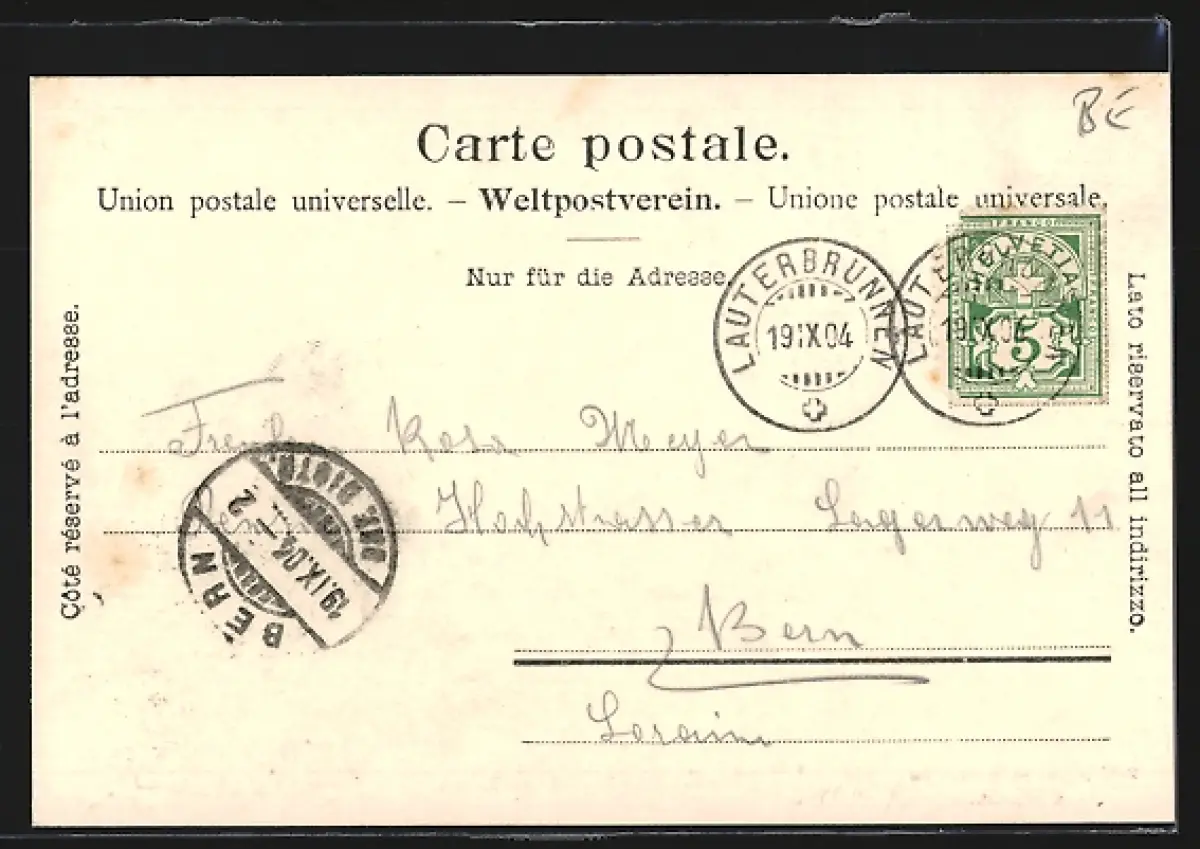 BE
Carte postale.
Union postale universelle. – Weltpostverein. – Unione postale universale.
Nur für die Adresse
Côté réservé à l'adresse.
Lato riservato all indirizzo.
FRANCO
HELVETIA
FRANCO
5
LAUTERBRUNNEN
19.IX.04
LAUTE
19.IX.04
Rosa Meyer
Hochstrasser Lagerweg 11
Bern
Lorraine
BERN
19.IX.04.-2